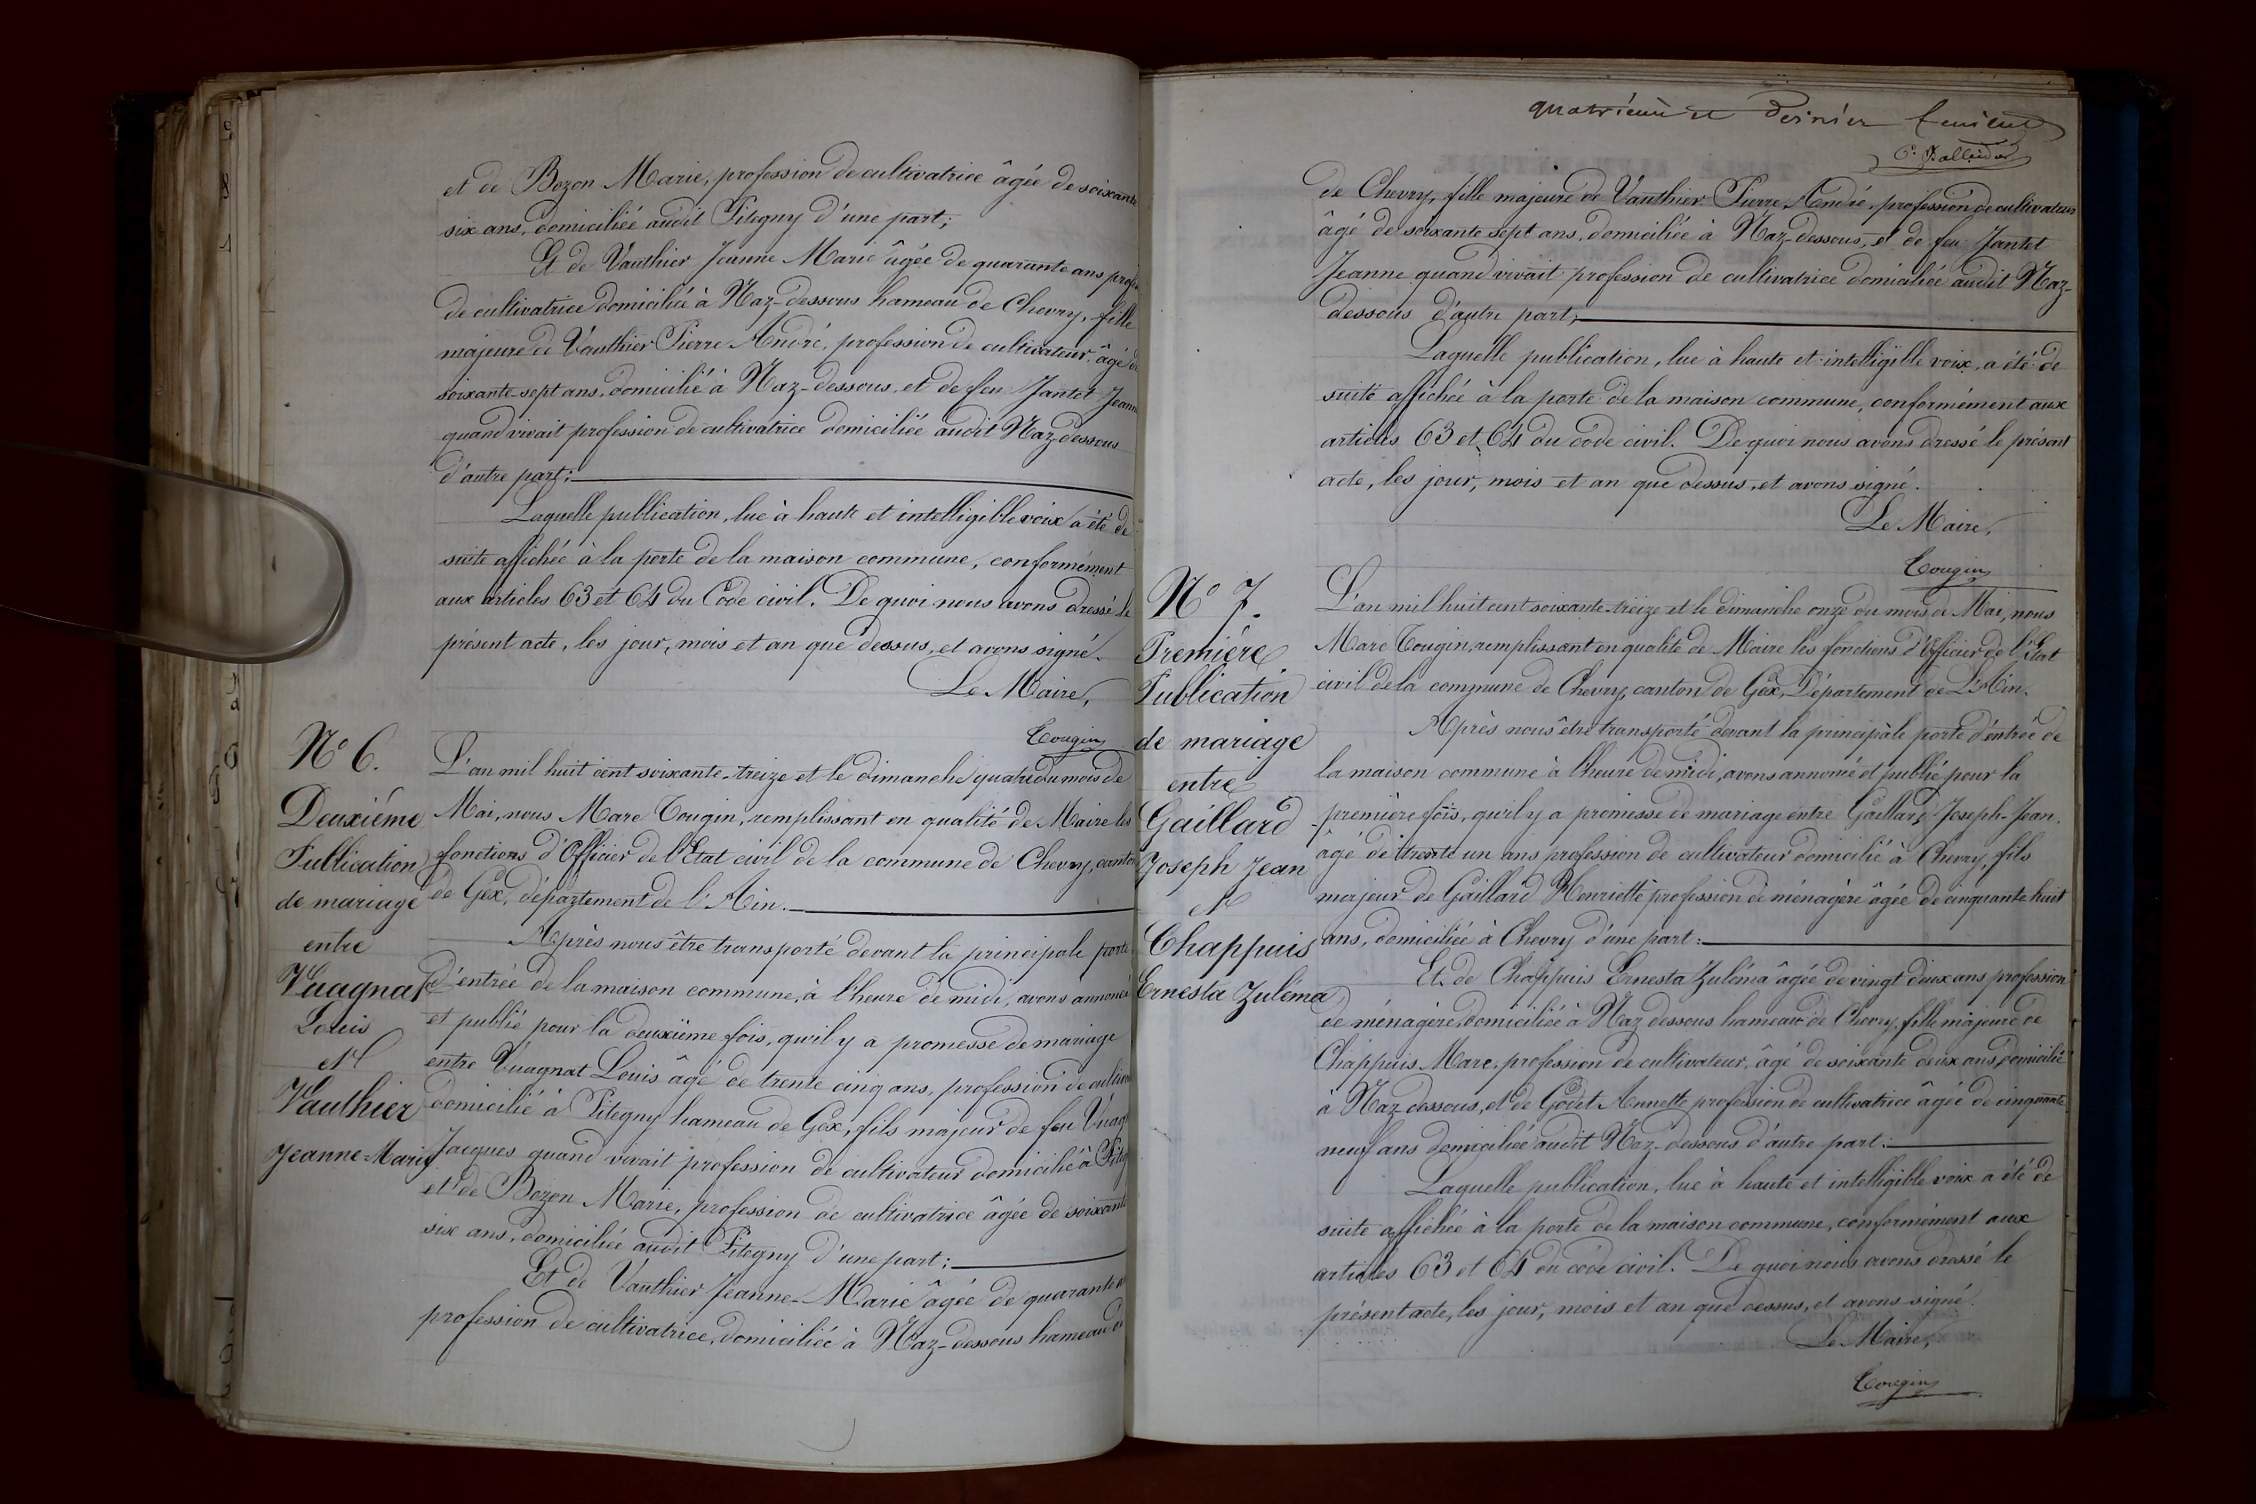 et de Bozon Marie, profession de cultivatrice âgée de soixante
six ans, domiciliée audit Pitegny d'une part;
Et de Vauthier Jeanne Marie âgée de quarante ans prof
de cultivatrice domiciliée à Naz-dessous hameau de Chevry, fille
majeure de Vauthier Pierre André, profession de cultivateur, âgé de
soixante-sept ans, domicilié à Naz-dessous, et de feu Jantet Jeanne
quand vivait profession de cultivatrice domiciliée audit Naz-dessous
d'autre part;
Laquelle publication, lue à haute et intelligible voix a été de
suite affichée à la porte de la maison commune, conformément
aux articles 63 et 64 du Code civil. De quoi nous avons dressé le
présent acte, les jour, mois et an que dessus, et avons signé.
Le Maire,
Tougin
N° 6.
Deuxième
Publication
de mariage
entre
Vuagnat
Louis
et
Vauthier
Jeanne-Marie
L'an mil huit cent soixante-treize et le dimanche quatre du mois de
Mai, nous Marc Tougin, remplissant en qualité de Maire les
fonctions d'Officier de l'Etat civil de la commune de Chevry, canton
de Gex, département de l'Ain.
Après nous être transporté devant la principale porte
d'entrée de la maison commune, à l'heure de midi, avons annoncé
et publié pour la deuxième fois, qu'il y a promesse de mariage
entre Vuagnat Louis âgé de trente cinq ans, profession de cultiva
domicilié à Pitegny hameau de Gex, fils majeur de feu Vuag
Jacques quand vivait profession de cultivateur domicilié à Piteg
et de Bozon Marie, profession de cultivatrice âgée de soixante
six ans, domiciliée audit Pitegny d'une part;
Et de Vauthier Jeanne-Marie âgée de quarante a
profession de cultivatrice, domiciliée à Naz-dessous hameau de
quatrième et dernier feuillet
de Chevry, fille majeure de Vauthier Pierre André, profession de cultivateur
âgé de soixante sept ans, domiciliée à Naz-dessous, et de feu Jantet
Jeanne quand vivait profession de cultivatrice domiciliée audit Naz-
dessous d'autre part;
Laquelle publication, lue à haute et intelligible voix, a été de
suite affichée à la porte de la maison commune, conformément aux
articles 63 et 64 du code civil. De quoi nous avons dressé le présent
acte, les jour, mois et an que dessus, et avons signé.
Le Maire,
Tougin
N° 7.
Première
Publication
de mariage
entre
Gaillard
Joseph Jean
et
Chappuis
Ernesta Zuléma
L'an mil huit cent soixante-treize et le dimanche onze du mois de Mai, nous
Marc Tougin, remplissant en qualité de Maire les fonctions d'Officier de l'Etat
civil de la commune de Chevry, canton de Gex, Département de L'Ain.
Après nous être transporté devant la principale porte d'entrée de
la maison commune à l'heure de midi, avons annoncé et publié pour la
première fois, qu'il y a promesse de mariage entre Gaillard Joseph-Jean.
âgé de trente un ans profession de cultivateur domicilié à Chevry, fils
majeur de Gaillard Henriette profession de ménagère âgée de cinquante huit
ans, domiciliée à Chevry d'une part:
Et de Chappuis Ernesta Zuléma âgée de vingt deux ans profession
de ménagère, domiciliée à Naz dessous hameau de Chevry, fille majeure de
Chappuis Marc, profession de cultivateur, âgé de soixante deux ans, domicilié
à Naz dessous, et de Godet Annette profession de cultivatrice âgée de cinquante
neuf ans domiciliée audit Naz-dessous d'autre part:
Laquelle publication, lue à haute et intelligible voix a été de
suite affichée à la porte de la maison commune, conformément aux
articles 63 et 64 du code civil. De quoi nous avons dressé le
présent acte, les jour, mois et an que dessus, et avons signé.
Le Maire,
Tougin